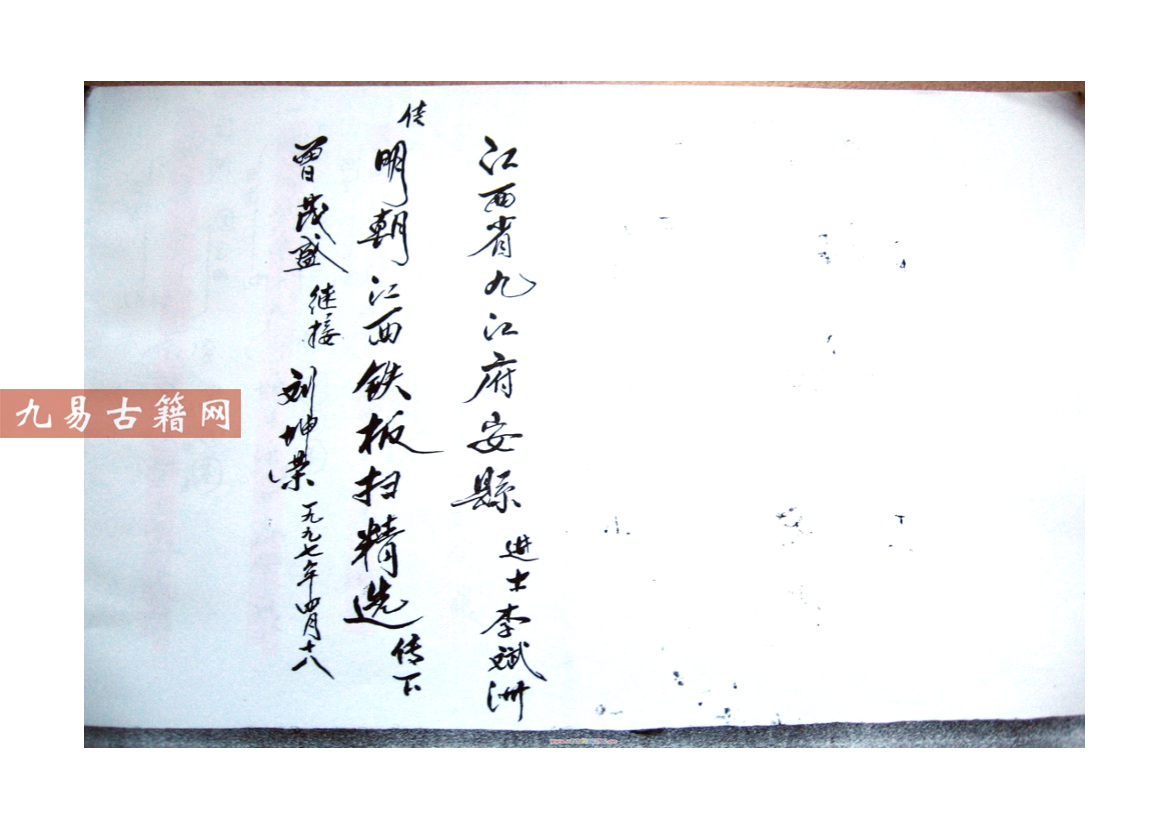 江西省九江府安縣 进士李斌洲
传
明朝江西铁板扫精选 传下
曾茂盛 继接 刘坤荣 一九九七年四月十八
九易古籍网